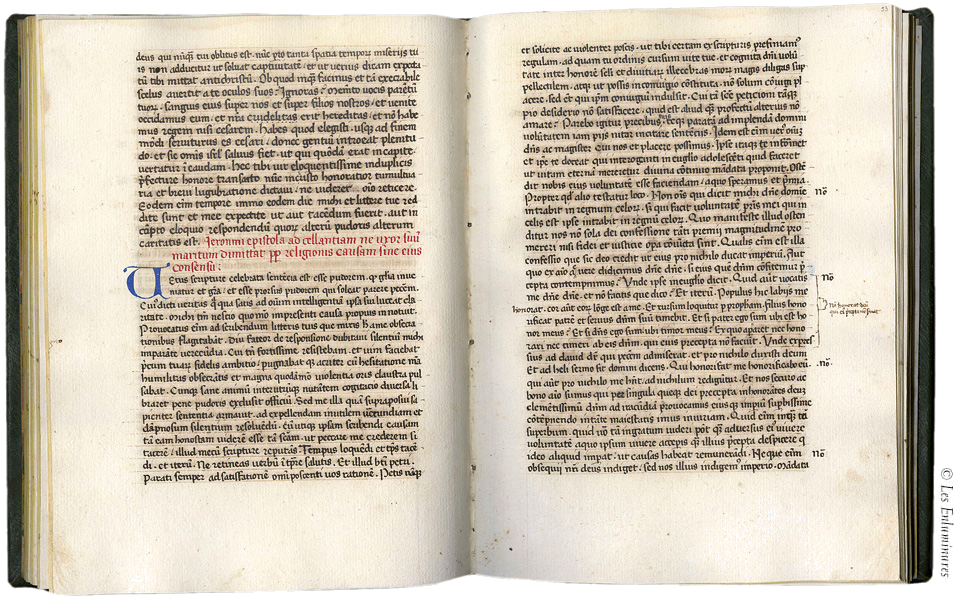 deus qui nūq̄ tui oblitus est. nūc p̱ tanta spatia tempor̄ miserijs tu
is non adducitur ut soluat captiuitatē. et ut uerius dicam expota
tū tibi mittat antichristū. Ob quod mḡ facimus et tā execrabile
scelus auertit a te oculos suos? Ignotas? memēto uocis parētū
tuor̄. sanguis eius super nos et super filios nostros. et uenite
occidamus eum. et nr̄a erit hereditas. et nō habe
mus regem nisi cesarem. habes quod elegisti. usq̄ ad finem
mōdi seruiturus es cesari. donec gentiū introeat plenitu
do. et sic omīs isrl saluus fiet. ut qui quōdā erat in capite.
uertatur ī caudam. Hec tibi uir eloquentissime in duplicis
p̄fecture honore transacto nūc in xp̄o honoratior tumultua
ria et breui lugubratione dictaui. ne uiderer oīo reticere.
Eodem eim̄ tempore immo eodem die michi et littere tue red
dite sunt et mee expectite ut aut tacēdum fuerit. aut in
cōpto eloquio respondendū quor̄ alterū pudoris alterum
caritatis est. Jeronimi epistola ad cellantiam ne uxor suū
maritum dimittat pp̄ religionis causam sine eius
consensu:
Vetus scripture celebrata sentēcia est. esse pudorem. q̄ gl̄iā inue
niatur et gr̄a. et esse prorsus pudorem qui soleat parere peccm̄.
Cui dicti ueritas q̄̄ua satis ad oīum intelligentiā ipsa sui luceat cla
ritate. michi tn̄ nescio quōmō impresenti causa propius innotuit.
Prouocatus eim̄ ad scribendum litteris tuis que miris hāc me obsecra
tionibus flagitabāt. Diu fateor de responsione dubitaui silentiū michi
imparāte uerecūdia. Cui tn̄ fortissime resistebam. et uim faciebat
pectini tuar̄ fidelis ambitio. pugnabat q̄ acriter cū hesitatione mā
humilitas obsecrātis et magna quodāmō uiolentia oris claustra pul
sabat. Cunq̄ sane animū inter utrūq̄ nutātem cogitacio diuersa li
braret pene pudoris exclusit officiū. Sed me illa quā supraposui sa
pienter sententia armauit. ad expellendam inutilem uerecundiam et
dāpnosum silentium resoluēdū. cū utiq̄ ipsam scribendi causam
tā eam honestam uiderē esse tā scām. ut peccare me crederem si
tacerē. illud mecū scripture reputās. Tempus loquēdi et tp̄s tacē
di. et iterū. Ne retineas uerbū ī tp̄re salutis. Et illud bt̄i petri.
Parati semper ad satisfationē om̄i poscenti uos rationē. Petis nāq̄
33
et solicite ac uiolenter poscis. ut tibi certam ex scripturis prefiniam9
regulam. ad quam tu ordines cursum uite tue. et cognita dn̄i uolū
tate inter honorē sc̄li et diuitiar̄ illecebras mor̄ magis diligas sup
pellectilem. atq̄ ut possis in coniugio cōstituta. nō solum cōiugi pl
acere. sed et qui ip̄m coniugiū indulsit. Cui tā sc̄e peticioni tāq̄
pio desiderio nō satisfacere. quid est aliud q̄ profectū alterius nō
amare? Parebo igitur precibus tuis. teq̄ parata ad implendā domini
uolūtatem iam p̱is nitar incitare sentēcijs. Idem est eim̄ uer9 oīum
dn̄s ac magister. Qui nos et placere possimus. Ipse itaq̄ te informet
et ip̄e te doceat. qui interoganti in euglio adolescēti quid faceret
ut uitam eternā meretetur diuina cōtinuo mādata proponit. Oste
dit nobis eius uoluntatē esse faciendam. a quo speramus et p̄mia.
Propter qd̄ alio testatur loco. Non oīs qui dicit michi dn̄e domine nō
intrabit in regnum celor̄. si qui facit voluntatē pris mei qui in
celis est ipse intrabit in regnū celor̄. Quo manifeste illud osten
ditur nos nō sola dei confessione tāti premij magnitudine pro
mereri nisi fidei et iusticie opa cōiuncta sint. Qualis eim̄ est illa
confessio que sic deo credit ut eius pro nichilo ducat imperiū. Aut
quō ex aīo a uere dicimus dn̄e dn̄e. si eius quē dn̄m cōfitemur p̄
cepta contempnimus? Vnde ipse ineuglio dicit. Quid aūt uocatis nō
me dn̄e dn̄e. et nō facitis que dico? Et iterū. Populus hic labijs me
honorat. cor aūt eor̄ lōge est a me. Et rursum loquitur p̱ propham. filius hono
rificat patrē et seruus dn̄m suū timebit. Et si pater ego sum ubi est ho
nor meus? Et si dn̄s ego sum ubi timor meus? Ex quo apparet nec hono
rari nec timeri ab eis dn̄m. qui eius precepta nō faciūt. Vnde expres
sius ad dauid dr̄ qui pecc̄m admiserat. et pro nichilo duxisti deum
Et ad heli sermo fit domini dicens. Qui honorificāt me honorificabo eū. nō
qui aūt pro nichilo me hn̄t. ad nichilum redigētur. Et nos securo ac
bono aīo sumus qui per singula queq̄ dei precepta inhonorātes deū
clementissimū dn̄m ad iracūdiā prouocamus eius q̄ impiū supbissime
cōtēpnendo intāte maiestatis imus iniuriam. Quid eim̄ inq̄ tā
superbum. quid uō tā ingratum uideri pōt q̄ aduersus ei9 uiuere
uoluntatē a quo ipsum uiuere acceris q̄ illius p̄cepta despicere q
ideo aliquid impat. ut causas habeat remunerādi. Neque eim̄ nō
obsequij nr̄i deus indiget. sed nos illius indigem9 imperio. mādata
© Les Enluminures